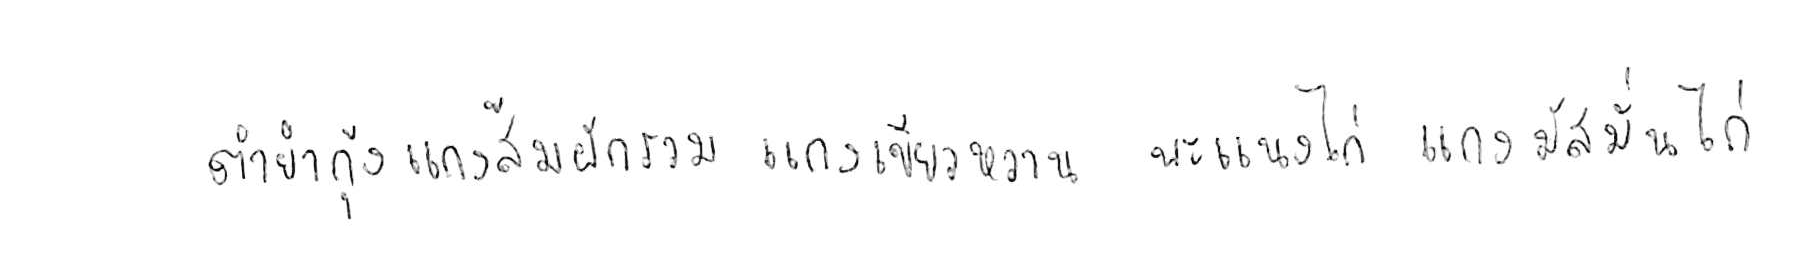 ตำยำกุ้งแกงส้มผักรวม แกงเขียวหวาน พะแนงไก่ แกงมัสมั่นไก่